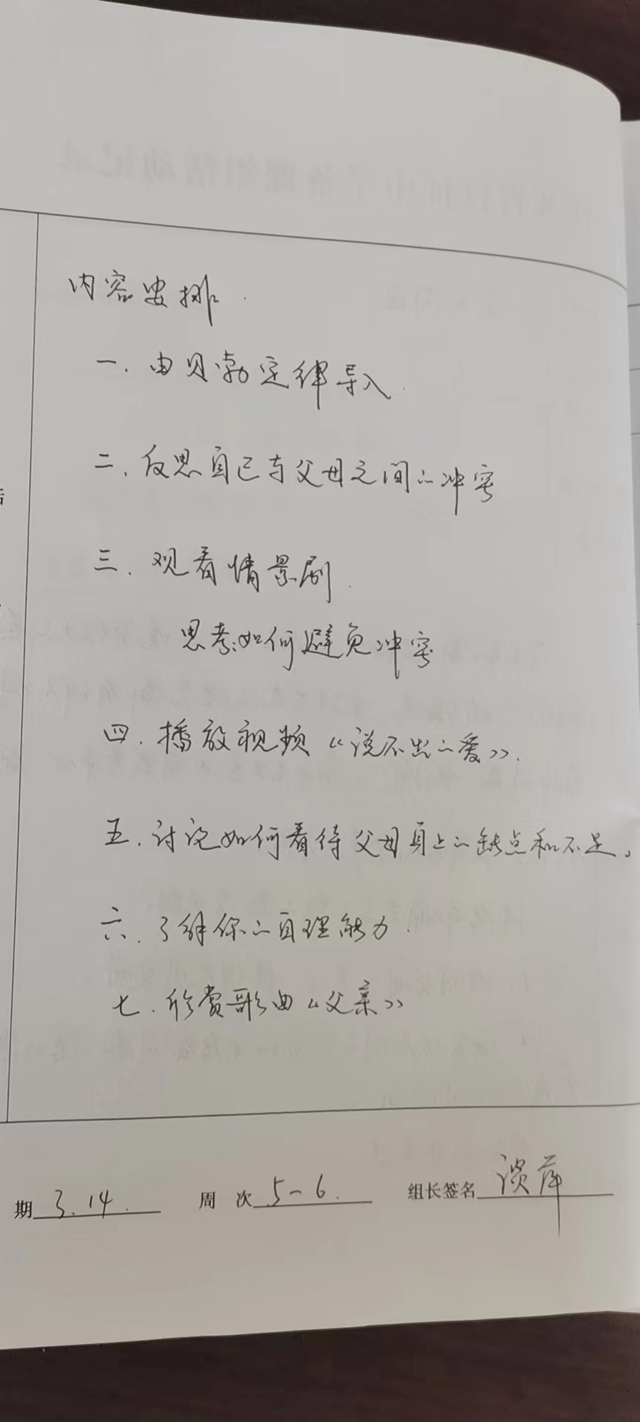 内容安排.
一.由贝勃定律导入.
二.反思自己与父母之间的冲突
三.观看情景剧.
思考:如何避免冲突
四.播放视频《说不出的爱》.
五.讨论如何看待父母身上的缺点和不足。
六.了解你的自理能力.
七.欣赏歌曲《父亲》
期 3.14. 周 次 5-6. 组长签名 谈萍